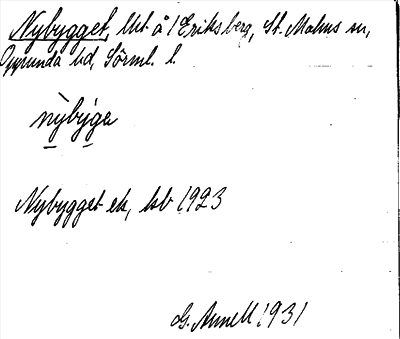 Nybygget, lht å /Eriksberg, St. Malms sn,
Oppunda hd, Sörml. l.
nỳby̍ga
Nybygget ek, hb 1923
G. Annell 1931